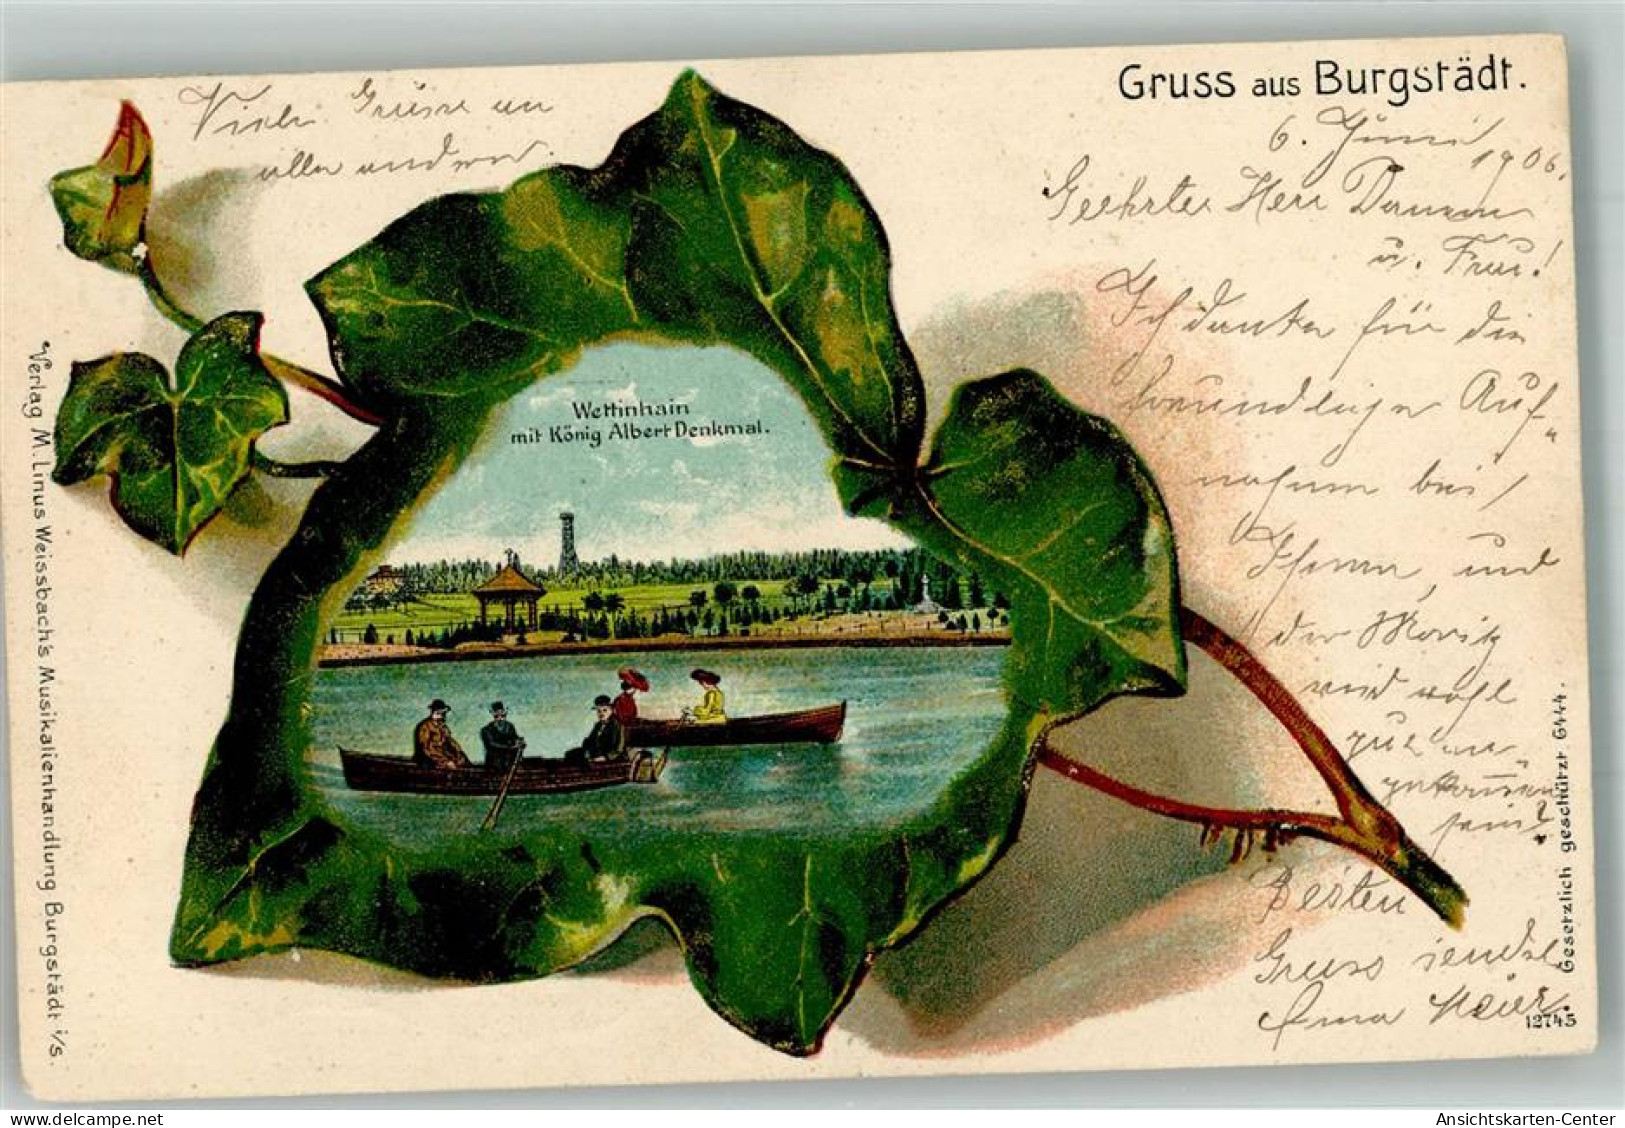 Gruss aus Burgstädt.
6. Juni 1906.
Viele Grüsse an
alle anderen.
Geehrter Herr
u. Frau!
Ich danke für die
freundliche Auf-
nahme bei
Ihnen, und
der Moritz
wird wohl
gut an-
gekommen
sein?
Besten
Gruss sendet
Wettinhain
mit König Albert Denkmal.
Verlag M. Linus Weissbach's Musikalienhandlung Burgstädt i/S.
Gesetzlich geschützt 6444.
12745
Ansichtskarten-Center